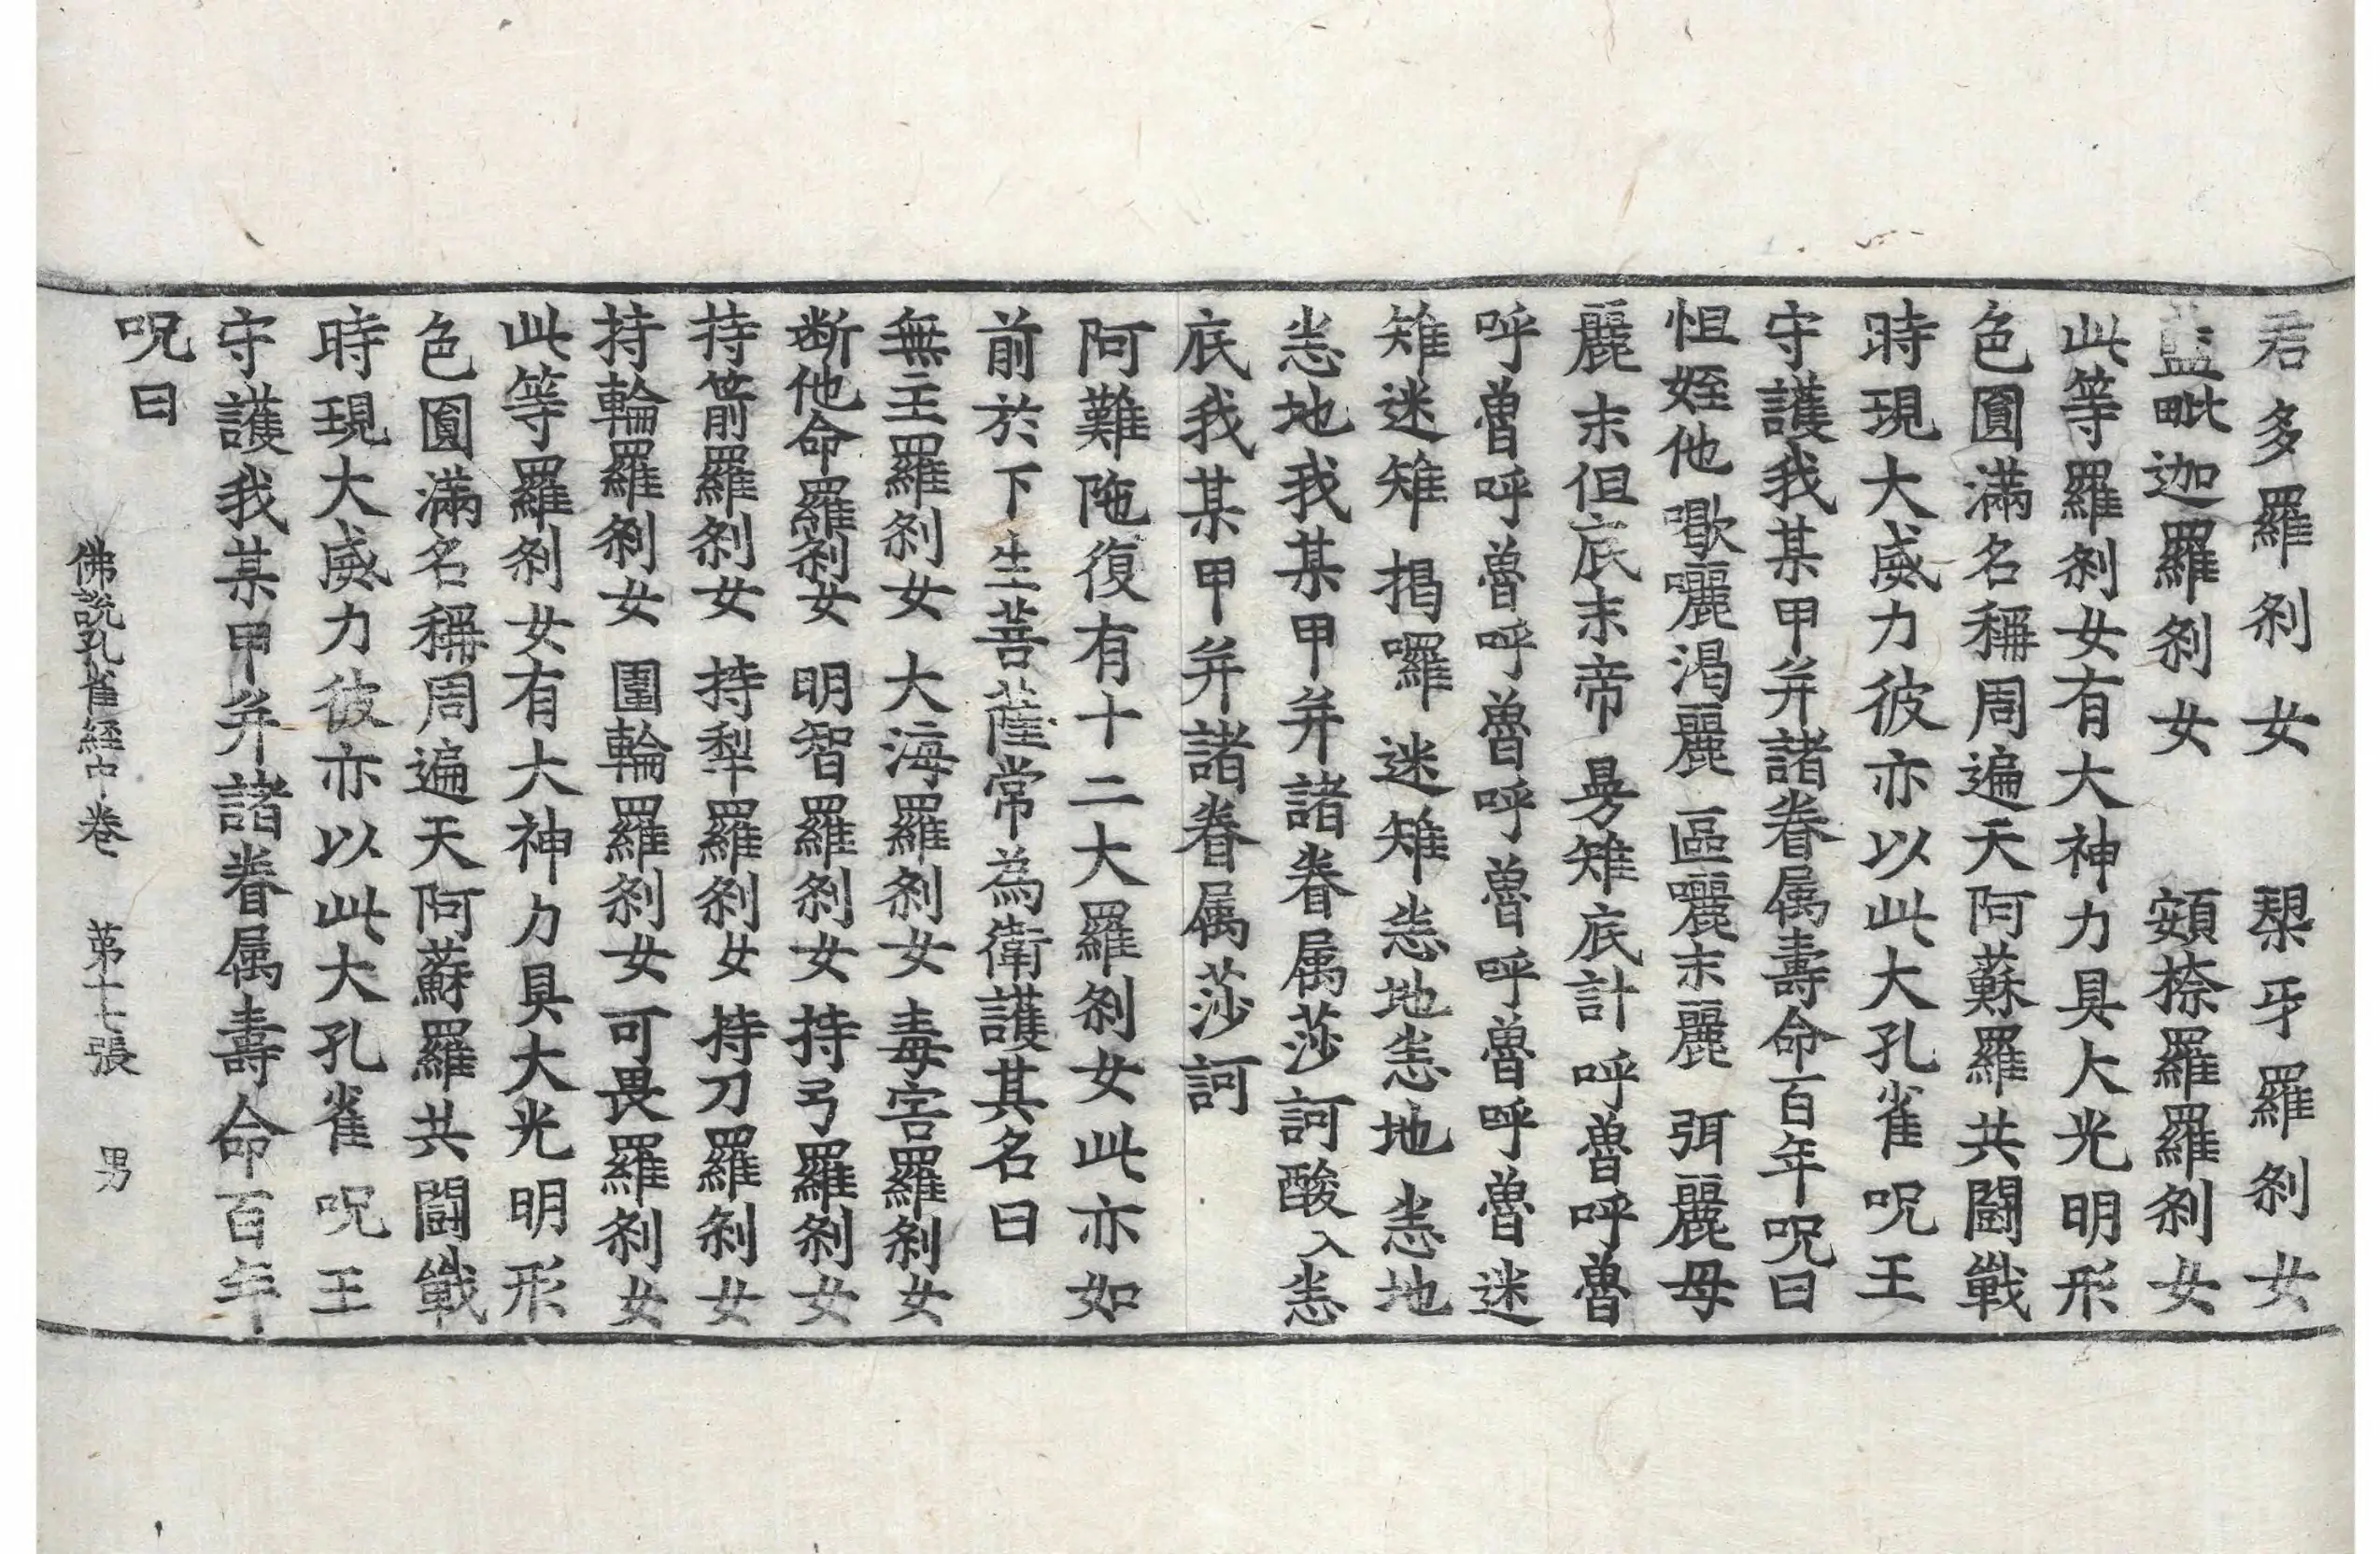 君多羅刹女 槼牙羅刹女
藍毗迦羅刹女 頞捺羅羅刹女
此等羅刹女有大神力具大光明形
色圓滿名稱周遍天阿蘇羅共鬪戰
時現大威力彼亦以此大孔雀呪王
守護我某甲并諸眷属壽命百年呪曰
怛姪他 歇囇渴麗 區囇末麗 弭麗母
麗 末但底末帝 曼雉底計 呼魯呼魯
呼魯呼魯呼魯呼魯呼魯呼魯迷
雉迷雉 揭囉 迷雉恙地恙地 恙地
恙地我某甲并諸眷属莎訶酸入恙
底我某甲并諸眷属莎訶
阿難陁復有十二大羅刹女此亦如
前於下生菩薩常為衛護其名曰
無主羅刹女 大海羅刹女 毒害羅刹女
断他命羅刹女 明智羅刹女 持弓羅刹女
持箭羅刹女 持犁羅刹女 持刀羅刹女
持輪羅刹女 圍輪羅刹女 可畏羅刹女
此等羅刹女有大神力具大光明形
色圓滿名稱周遍天阿蘇羅共鬪戰
時現大威力彼亦以此大孔雀呪王
守護我某甲并諸眷属壽命百年
呪曰
佛說孔雀經中卷 苐十七張 男